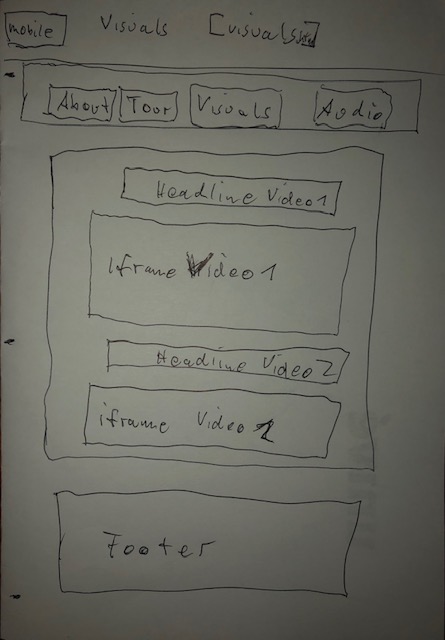 mobile Visuals [visuals
About Tour Visuals Audio
Headline Video1
iframe Video1
Headline Video2
iframe Video2
Footer